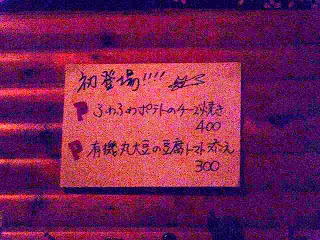 初登場!!!!
P ふわふわポテトのチーズ焼き
400
P 有機丸大豆の豆腐トマト添え
300